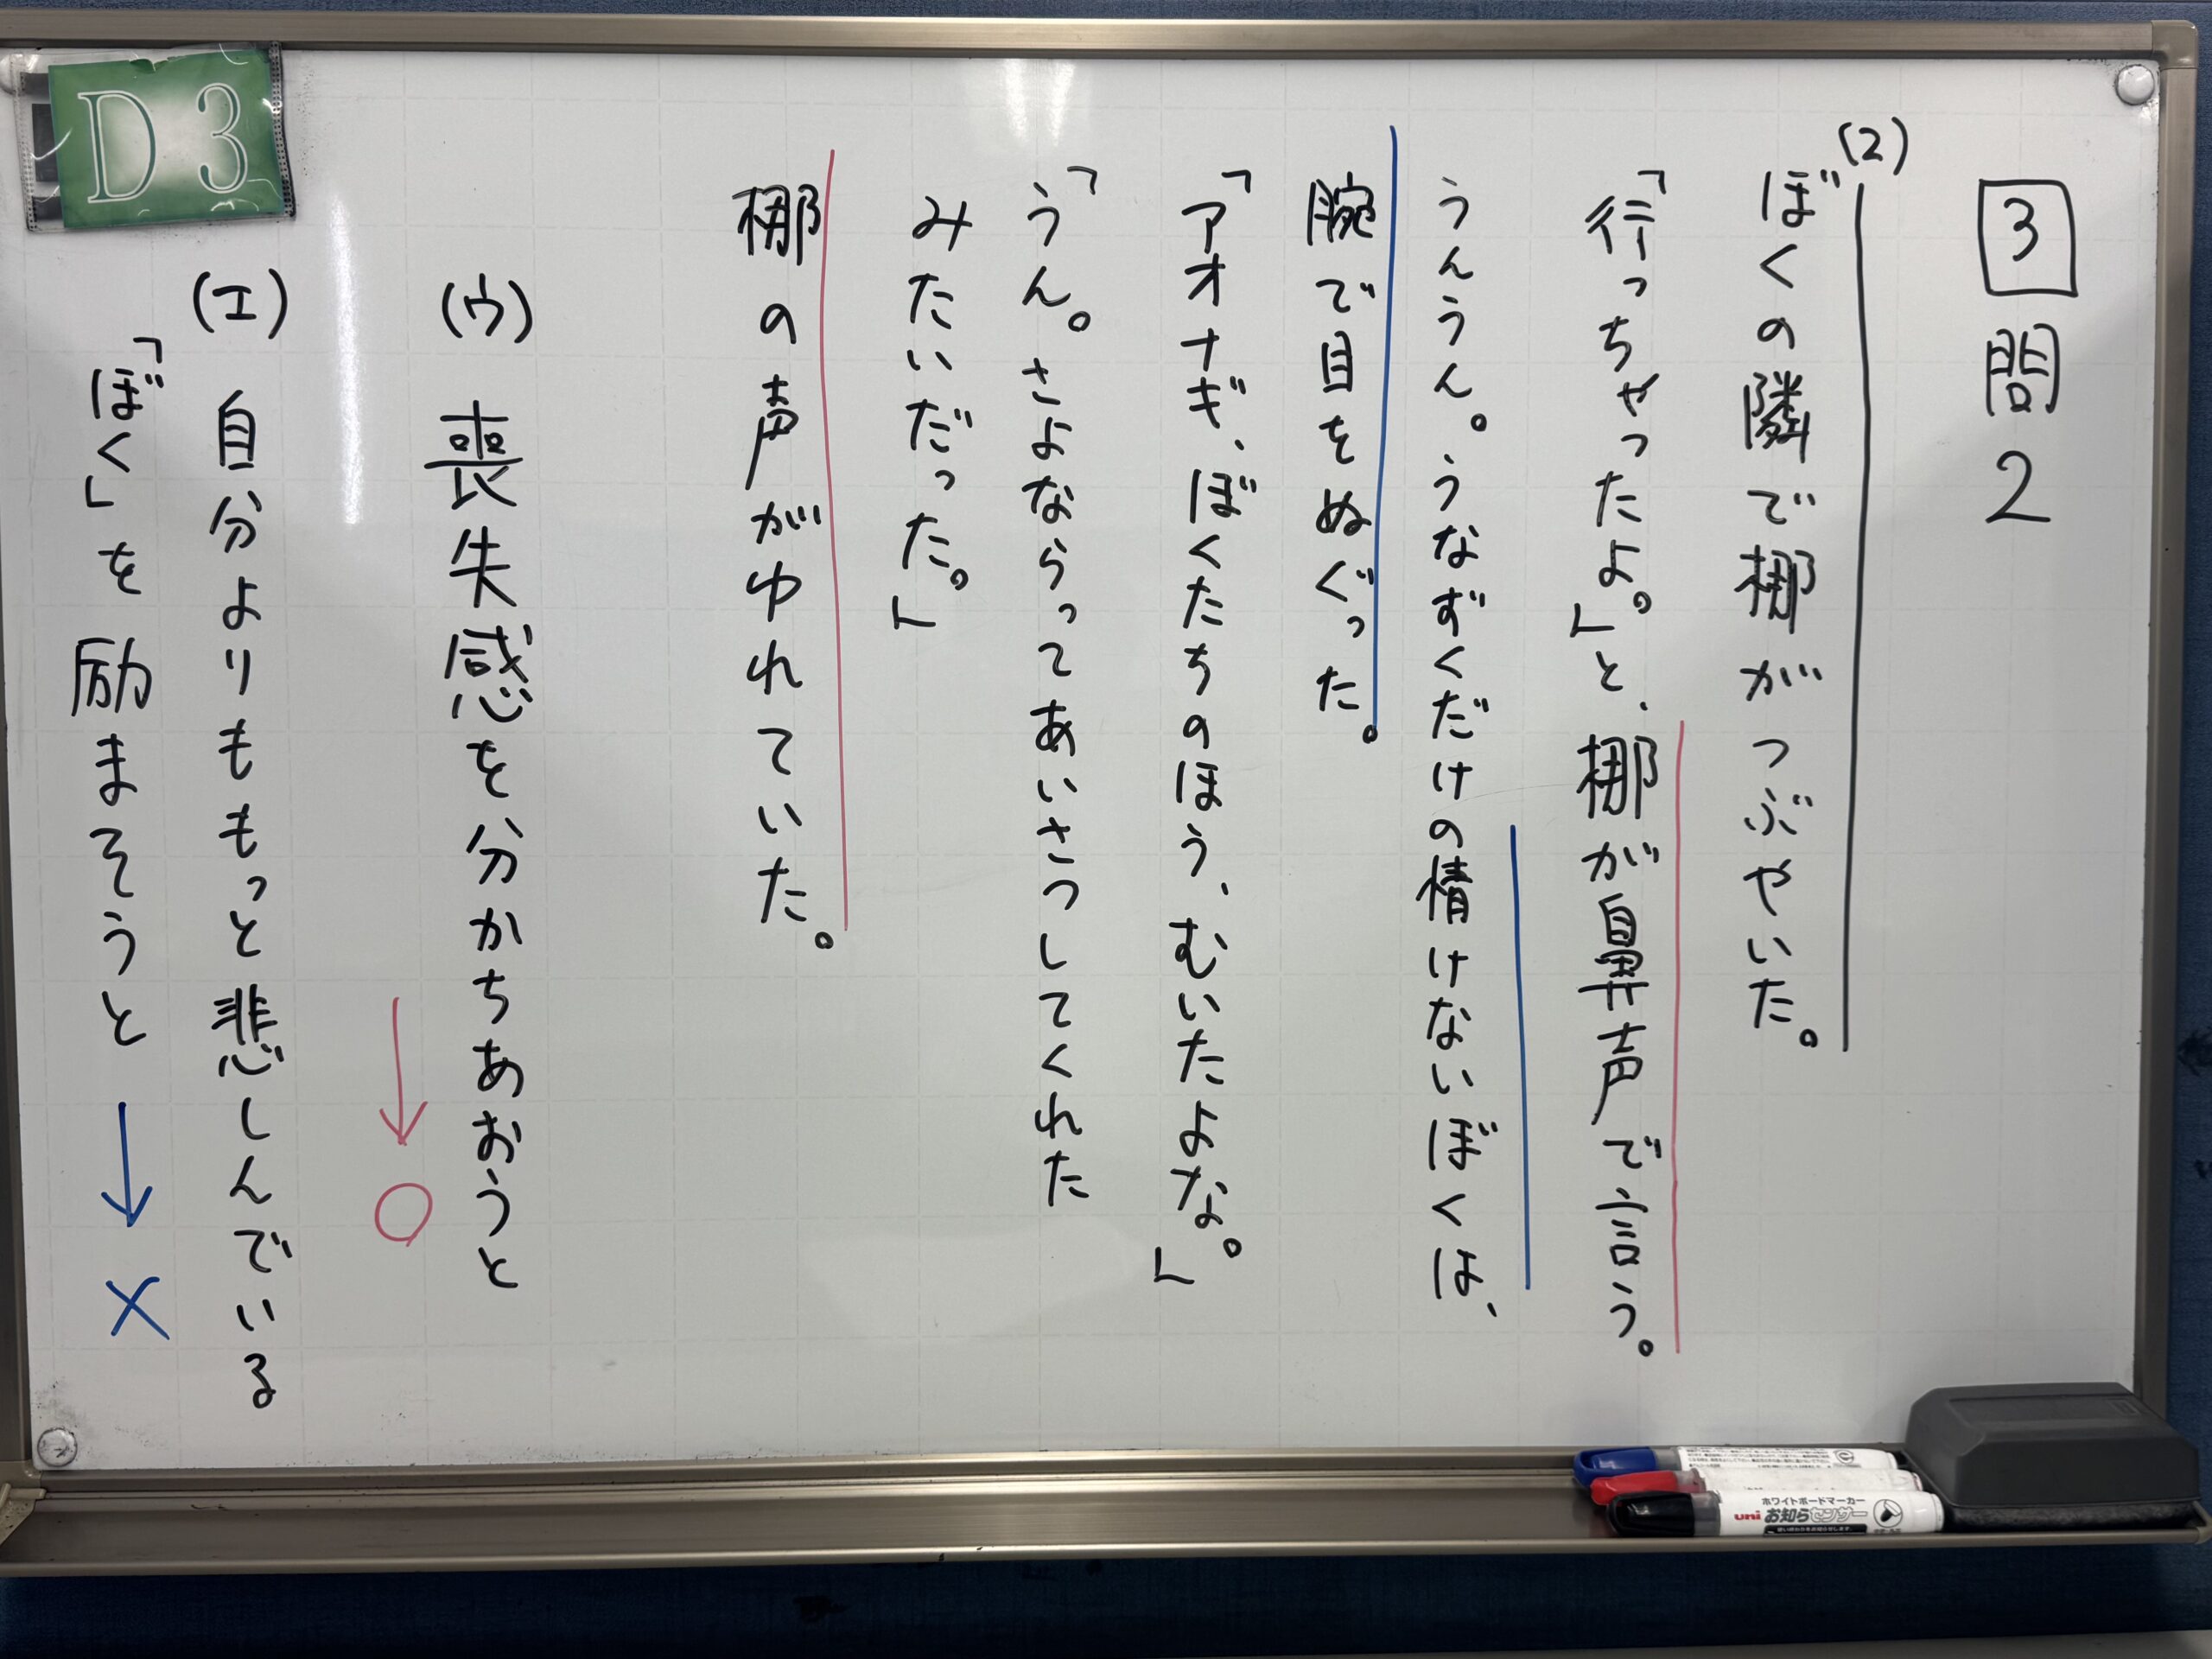 3 問2
(2)
ぼくの隣で梛がつぶやいた。
「行っちゃったよ。」と、梛が鼻声で言う。
うんうん。うなずくだけの情けないぼくは、
腕で目をぬぐった。
「アオナギ、ぼくたちのほう、むいたよな。」
「うん。さよならってあいさつしてくれた
みたいだった。」
梛の声がゆれていた。
(ウ) 喪失感を分かちあおうと
→○
(エ) 自分よりももっと悲しんでいる
「ぼく」を励まそうと →×
D3
ホワイトボードマーカー
uni お知らセンサー